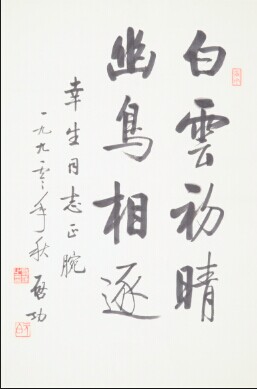 白雲初晴
幽鳥相逐
幸生同志正腕
一九九零年秋
啓功